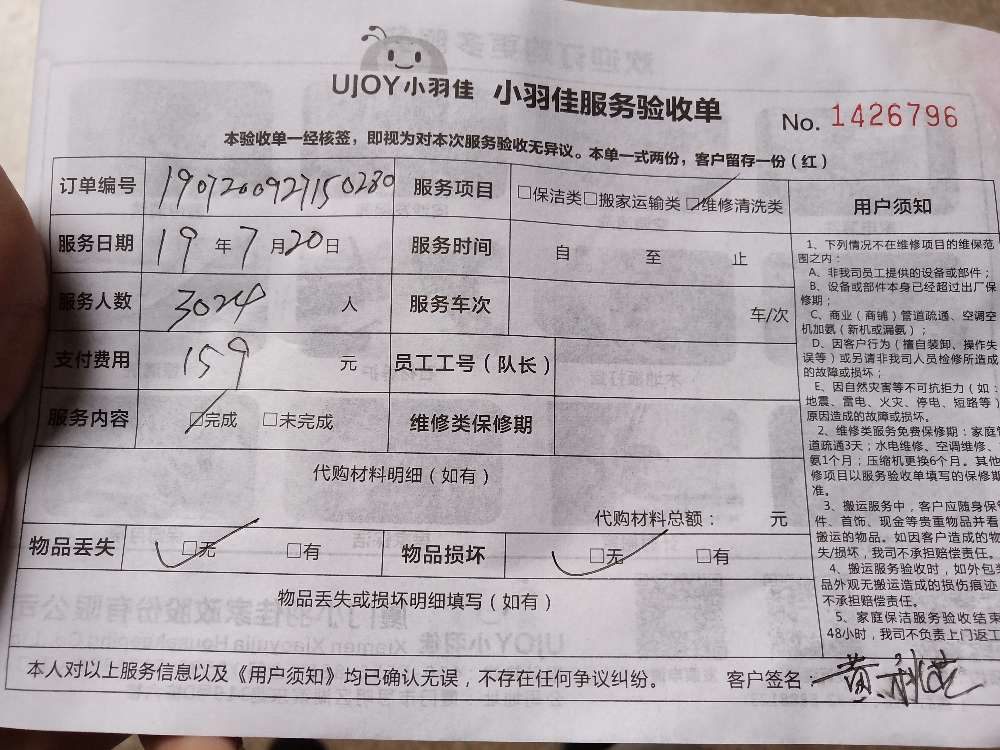 UJOY小羽佳 小羽佳服务验收单
No. 1426796
本验收单一经核签，即视为对本次服务验收无异议。本单一式两份，客户留存一份（红）
订单编号 1907200927150280 服务项目 □保洁类□搬家运输类□维修清洗类
服务日期 19 年 7 月 20 日 服务时间 自 至 止
服务人数 3024 人 服务车次 车/次
支付费用 159 元 员工工号（队长）
服务内容 □完成 □未完成 维修类保修期
代购材料明细（如有）
代购材料总额： 元
物品丢失 □无 □有 物品损坏 □无 □有
物品丢失或损坏明细填写（如有）
本人对以上服务信息以及《用户须知》均已确认无误，不存在任何争议纠纷。 客户签名：黄
用户须知
1、下列情况不在维修项目的维保范
围之内：
A、非我司员工提供的设备或部件；
B、设备或部件本身已经超过出厂保
修期；
C、商业（商铺）管道疏通、空调空
机加氨（新机或漏氨）；
D、因客户行为（擅自装卸、操作失
误等）或另请非我司人员检修所造成
的故障或损坏；
E、因自然灾害等不可抗拒力（如：
地震、雷电、火灾、停电、短路等）
原因造成的故障或损坏。
2、维修类服务免费保修期：家庭管
道疏通3天；水电维修、空调维修、
氨1个月；压缩机更换6个月。其他
修项目以服务验收单填写的保修期
准。
3、搬运服务中，客户应随身保管
件、首饰、现金等贵重物品并看
搬运的物品。如因客户造成的物
失/损坏，我司不承担赔偿责任。
4、搬运服务验收时，如外包装
品外观无搬运造成的损伤痕迹
不承担赔偿责任。
5、家庭保洁服务验收结束
48小时，我司不负责上门返工